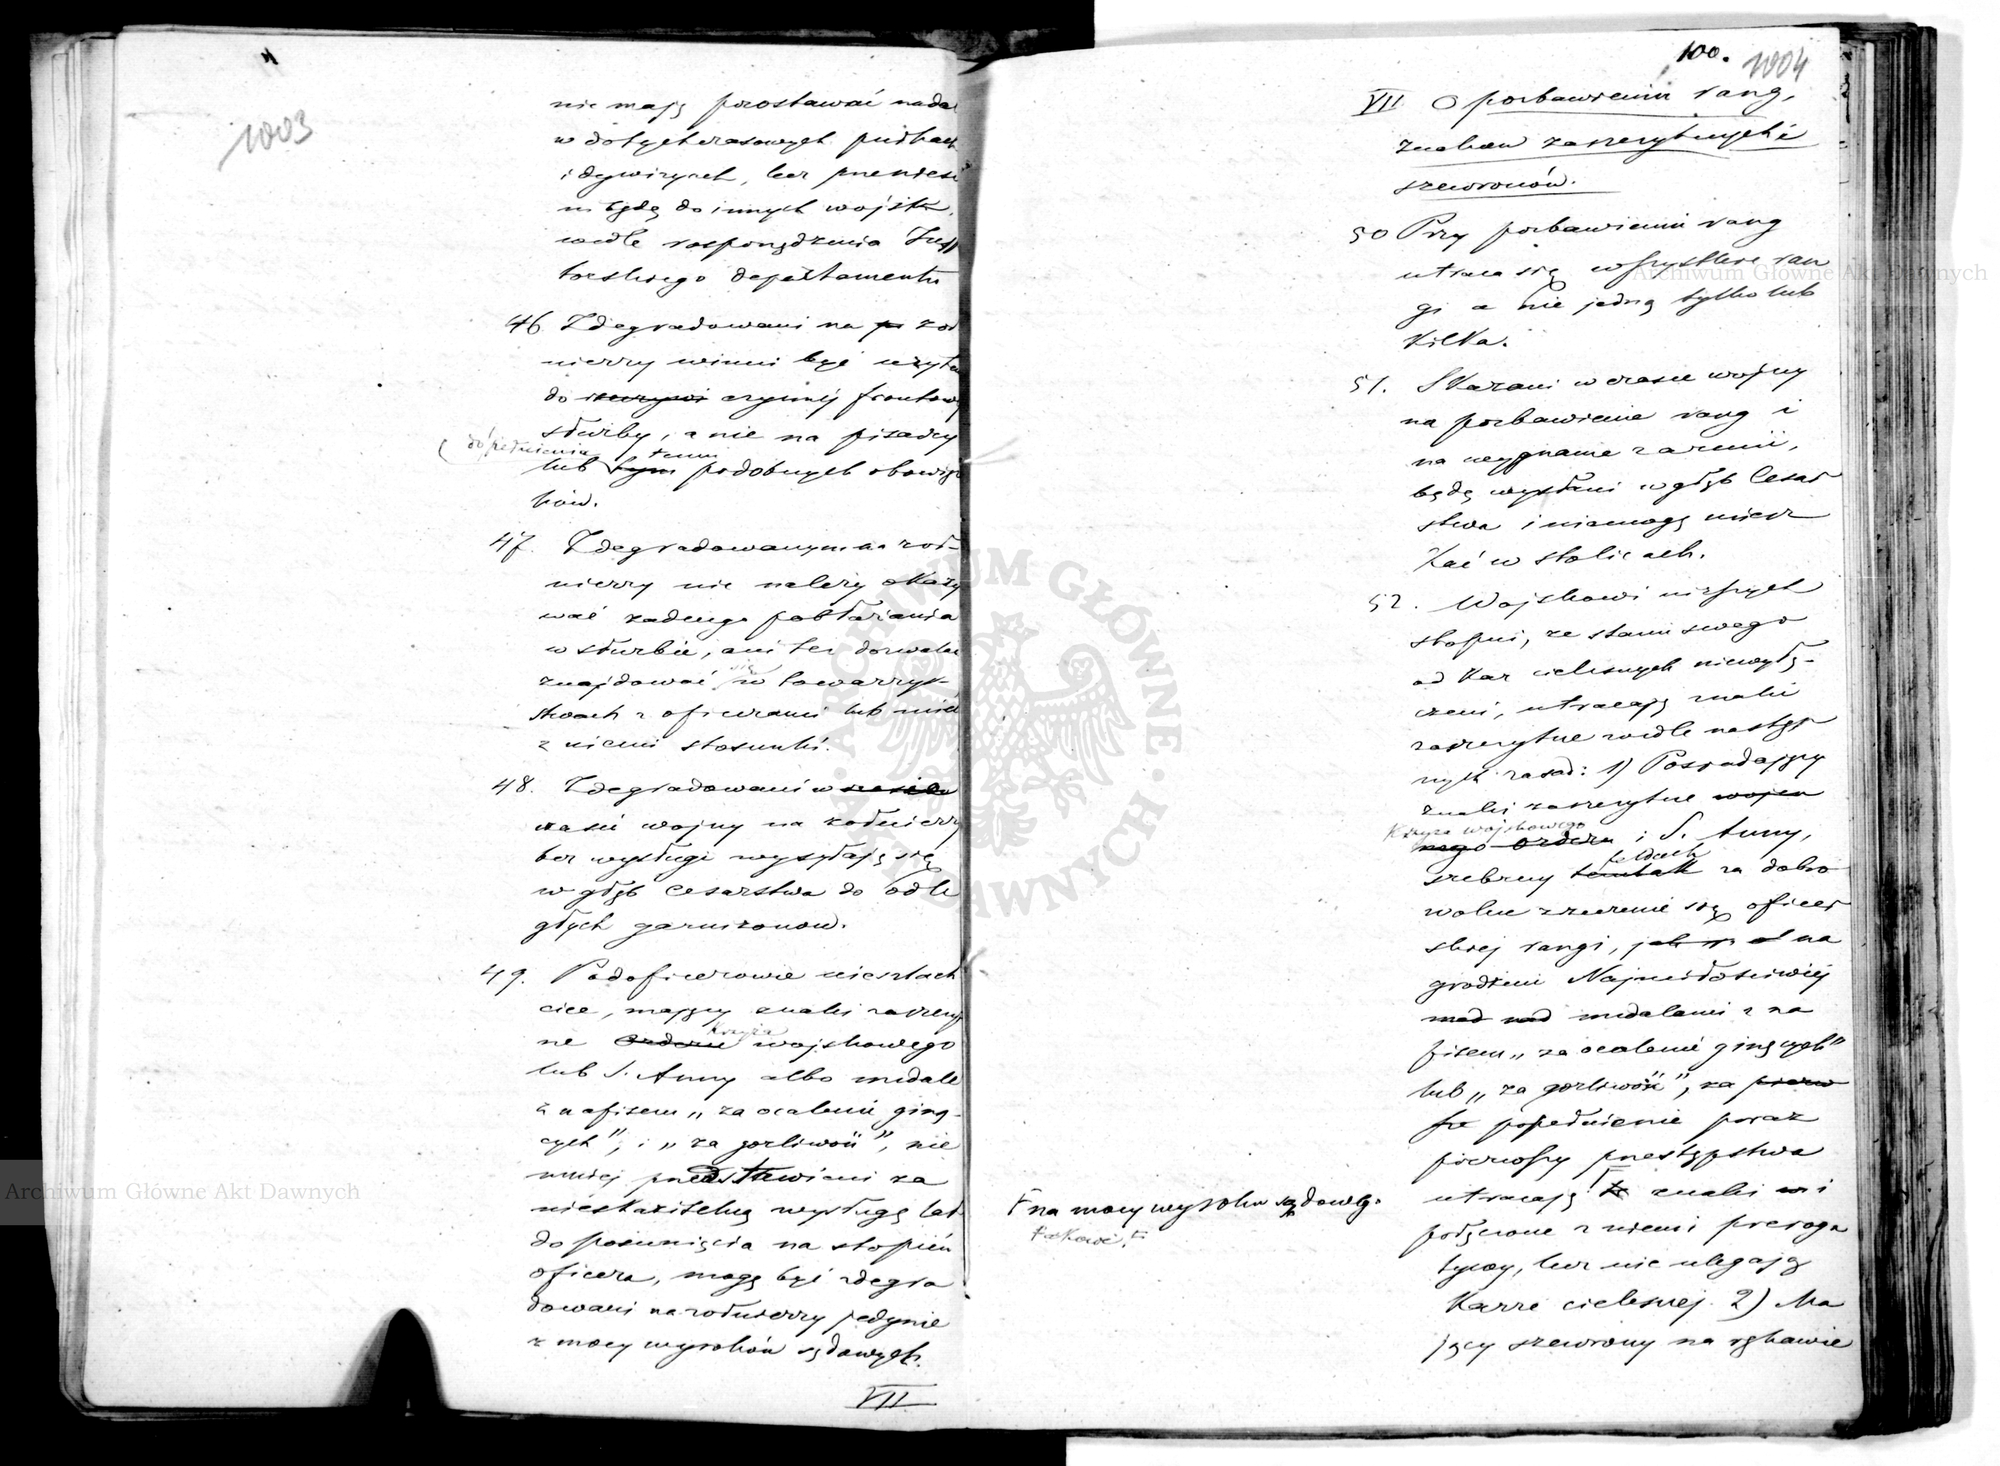 1003
nie mają pozostawać nadal
w dotychczasowych pułkach
i dywizyach, lecz przeniesie
ni będą do innych wojsk,
wedle rosporządzenia Insp
torskiego departamentu
46. Zdegradowani na żoł
nierzy winni być użyte
do czynnéj frontowej
służby, a nie na pisarzy
( do pełnienia
lub tym temu podobnych obowiąz
ków.
47. Zdegradowanym na żoł-
nierzy nie należy okazy
wać żadnego pobłażania
w służbie, ani też dozwalać
znajdować się w towarzys-
twach z oficerami lub mieć
z niemi stosunki.
48. Zdegradowani w
czasie wojny na żołnierzy
bez wysługi wysyłają się
w głąb Cesarstwa do odle
głych garnizonow.
49. Podoficerowie nieszlach
cice, mający znaki zaszczyt
ne Orderu Krzyża wojskowego
lub S. Anny albo medale
z napisem „za ocalenie giną-
cych", i „za gorliwość", nie
mniej przedstawieni za
nieskazitelną wysługę lat
do posunięcia na stopień
oficera, mogą być zdegra
dowani na żołnierzy jedynie
z mocy wyroków sądowych.
VII
100. 1004
VII O pozbawieniu rang,
znakow zaszczytnych i
szewronów.
50 Przy pozbawieniu rang
utraca się wszystkie ran
gi a nie jedną tylko lub
kilka.
51. Skazani w czasie wojny
na pozbawienie rang i
na wygnanie z armii,
będą wysłani w głąb Cesar
stwa i niemogą miesz
kać w stolicach.
52. Wojskowi niższych
stopni, ze stanu swego
od kar cielesnych niewyłą-
czeni, utracają znaki
zaszczytne wedle następ
nych zasad: 1) Posiadający
znaki zaszczytne wojen
Krzyża wojskowego
nego Orderu i S. Anny,
srebrny temlak za dobro
wolne zrzeczenie się oficer
skiej rangi, na
grodzeni Najmiłościwiéj
medalami z na
pisem „za ocalenie ginących"
lub „za gorliwość", za pierw
sze popełnienie poraz
pierwszy przestępstwa
utracają te znaki w i
połączone z niemi preroga
tywy, lecz nie ulegają
karze cielesnej. 2) Ma
jący szewrony na rękawie
na mocy wyroku sądowego
takowe
Archiwum Główne Akt Dawnych
Archiwum Główne Akt Dawnych
ARCHIWUM GŁÓWNE AKT DAWNYCH